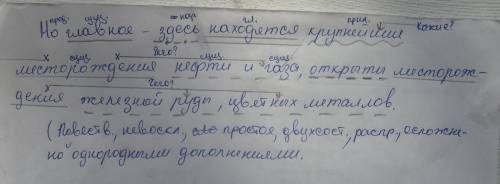 пред. сущ. нар. гл. прил. Какие?
Но главное - здесь находятся крупнейшие
сущ. Чего? сущ. сущ.
месторождения нефти и газа, открыты месторож-
Чего?
дения железной руды, цветных металлов.
(Повеств, невоскл, простое, двухсост, распр, осложне-
но однородными дополнениями.